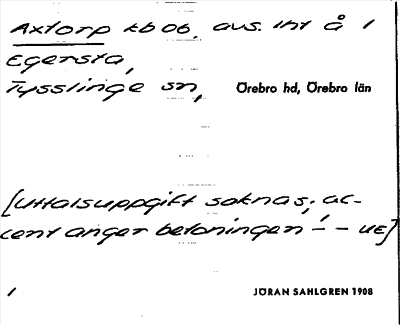 Axtorp kb 06, avs. int å i
Egersta,
Tysslinge sn, Örebro hd, Örebro län
[Uttalsuppgift saknas; ac-
cent anger betoningen – – UE]
1 JÖRAN SAHLGREN 1908